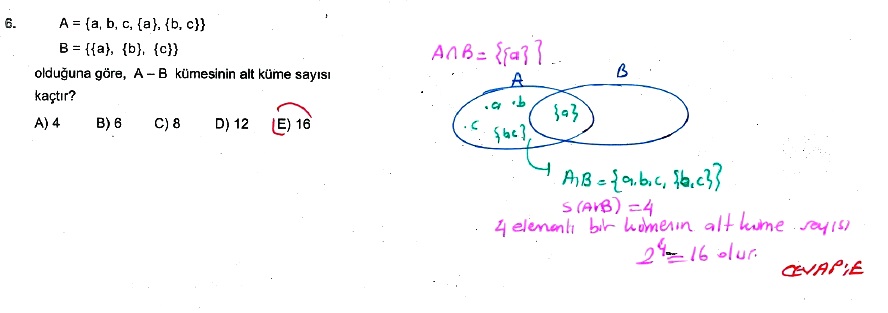 6. A = {a, b, c, {a}, {b, c}}
B = {{a}, {b}, {c}}
olduğuna göre, A – B kümesinin alt küme sayısı
kaçtır?
A) 4 B) 6 C) 8 D) 12 E) 16
A∩B = {{a}}
A B
.a .b {a}
.c {b,c}
A\B = {a,b,c, {b,c}}
S(A\B) = 4
4 elemanlı bir kümenin alt küme sayısı
2⁴ = 16 olur.
CEVAP:E